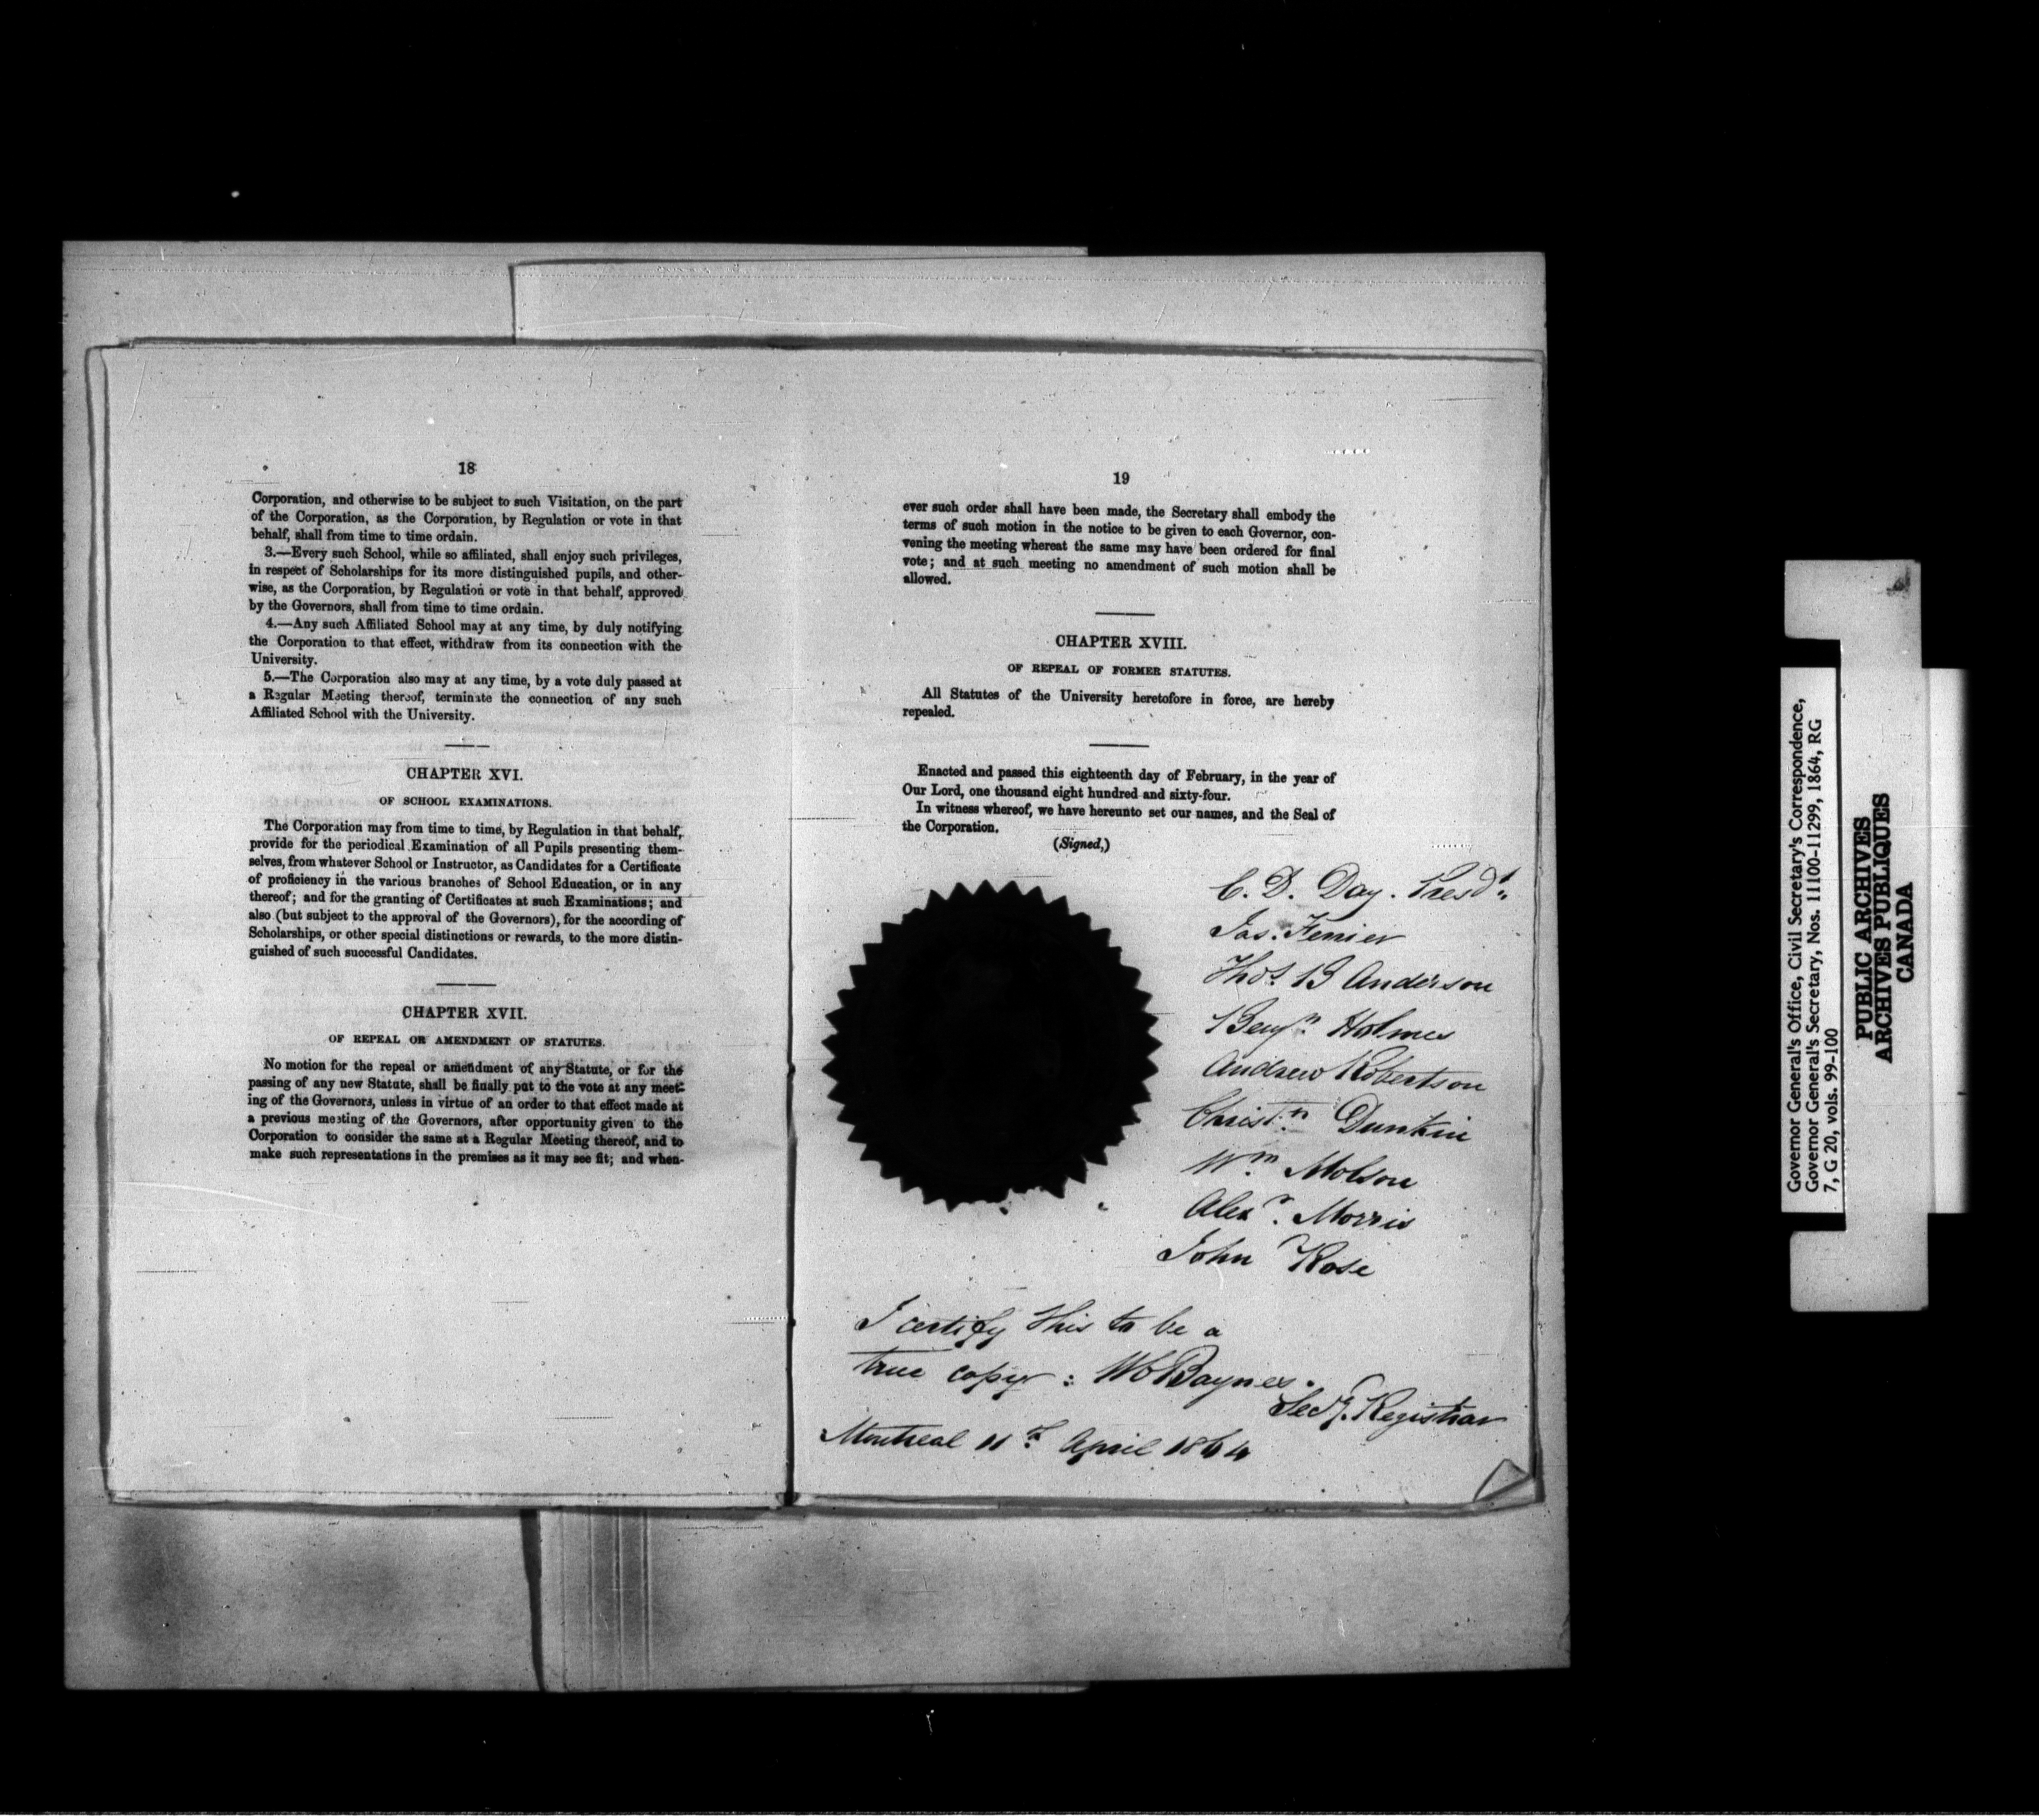 18
Corporation, and otherwise to be subject to such Visitation, on the part
of the Corporation, as the Corporation, by Regulation or vote in that
behalf, shall from time to time ordain.
3.—Every such School, while so affiliated, shall enjoy such privileges,
in respect of Scholarships for its more distinguished pupils, and other-
wise, as the Corporation, by Regulation or vote in that behalf, approved
by the Governors, shall from time to time ordain.
4.—Any such Affiliated School may at any time, by duly notifying
the Corporation to that effect, withdraw from its connection with the
University.
5.—The Corporation also may at any time, by a vote duly passed at
a Regular Meeting thereof, terminate the connection of any such
Affiliated School with the University.
CHAPTER XVI.
OF SCHOOL EXAMINATIONS.
The Corporation may from time to time, by Regulation in that behalf,
provide for the periodical Examination of all Pupils presenting them-
selves, from whatever School or Instructor, as Candidates for a Certificate
of proficiency in the various branches of School Education, or in any
thereof; and for the granting of Certificates at such Examinations; and
also (but subject to the approval of the Governors), for the according of
Scholarships, or other special distinctions or rewards, to the more distin-
guished of such successful Candidates.
CHAPTER XVII.
OF REPEAL OR AMENDMENT OF STATUTES.
No motion for the repeal or amendment of any Statute, or for the
passing of any new Statute, shall be finally put to the vote at any meet-
ing of the Governors, unless in virtue of an order to that effect made at
a previous meeting of the Governors, after opportunity given to the
Corporation to consider the same at a Regular Meeting thereof, and to
make such representations in the premises as it may see fit; and when-
19
ever such order shall have been made, the Secretary shall embody the
terms of such motion in the notice to be given to each Governor, con-
vening the meeting whereat the same may have been ordered for final
vote; and at such meeting no amendment of such motion shall be
allowed.
CHAPTER XVIII.
OF REPEAL OF FORMER STATUTES.
All Statutes of the University heretofore in force, are hereby
repealed.
Enacted and passed this eighteenth day of February, in the year of
Our Lord, one thousand eight hundred and sixty-four.
In witness whereof, we have hereunto set our names, and the Seal of
the Corporation.
(Signed,)
C. D. Day. Presdt.
Jas. Ferrier
Thos. B Anderson
Benjn. Holmes
Andrew Robertson
Christn. Dunkin
Wm. Molson
Alexr. Morris
John Rose
I certify this to be a
true copy: WC Baynes.
Secy. Registrar
Montreal 11th April 1864
Governor General's Office, Civil Secretary's Correspondence,
Governor General's Secretary, Nos. 11100-11299, 1864, RG
7, G 20, vols. 99-100
PUBLIC ARCHIVES
ARCHIVES PUBLIQUES
CANADA